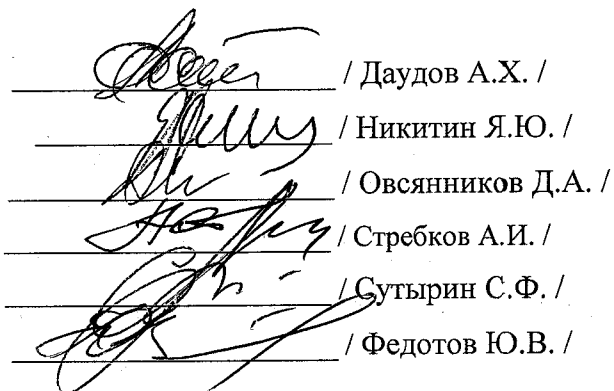 / Даудов А.Х. /
/ Никитин Я.Ю. /
/ Овсянников Д.А. /
/ Стребков А.И. /
/ Сутырин С.Ф. /
/ Федотов Ю.В. /